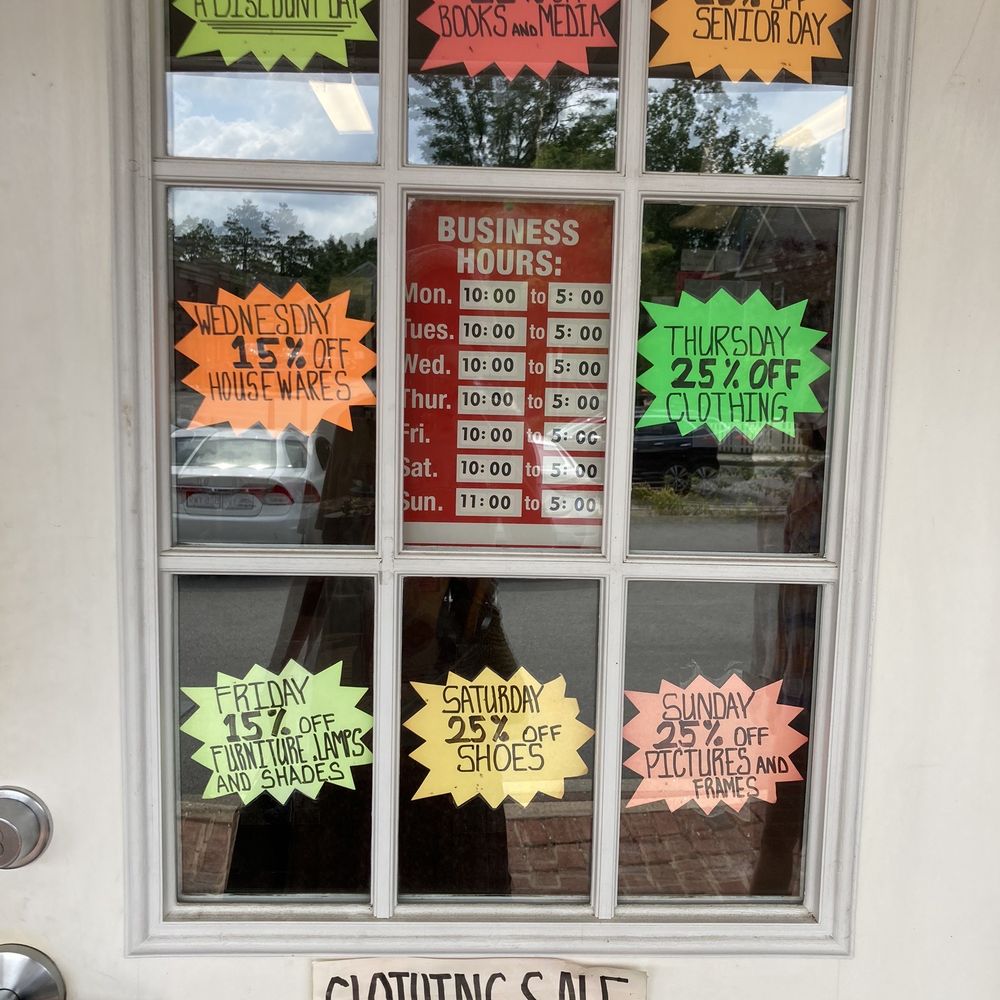 A DISCOUNT DAY
BOOKS AND MEDIA
OFF
SENIOR DAY
WEDNESDAY
15% OFF
HOUSEWARES
BUSINESS
HOURS:
Mon. 10:00 to 5:00
Tues. 10:00 to 5:00
Wed. 10:00 to 5:00
Thur. 10:00 to 5:00
Fri. 10:00 to 5:00
Sat. 10:00 to 5:00
Sun. 11:00 to 5:00
THURSDAY
25% OFF
CLOTHING
FRIDAY
15% OFF
FURNITURE, LAMPS
AND SHADES
SATURDAY
25% OFF
SHOES
SUNDAY
25% OFF
PICTURES AND
FRAMES
CLOTHING SALE